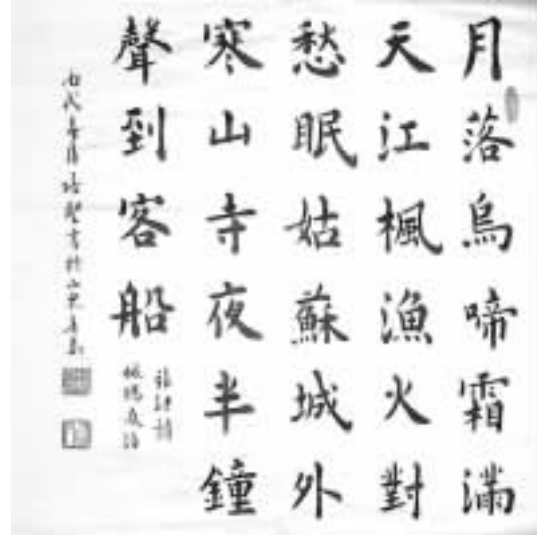 月落烏啼霜滿
天江楓漁火對
愁眠姑蘇城外
寒山寺夜半鐘
聲到客船
張繼詩
楓橋夜泊
書於山東